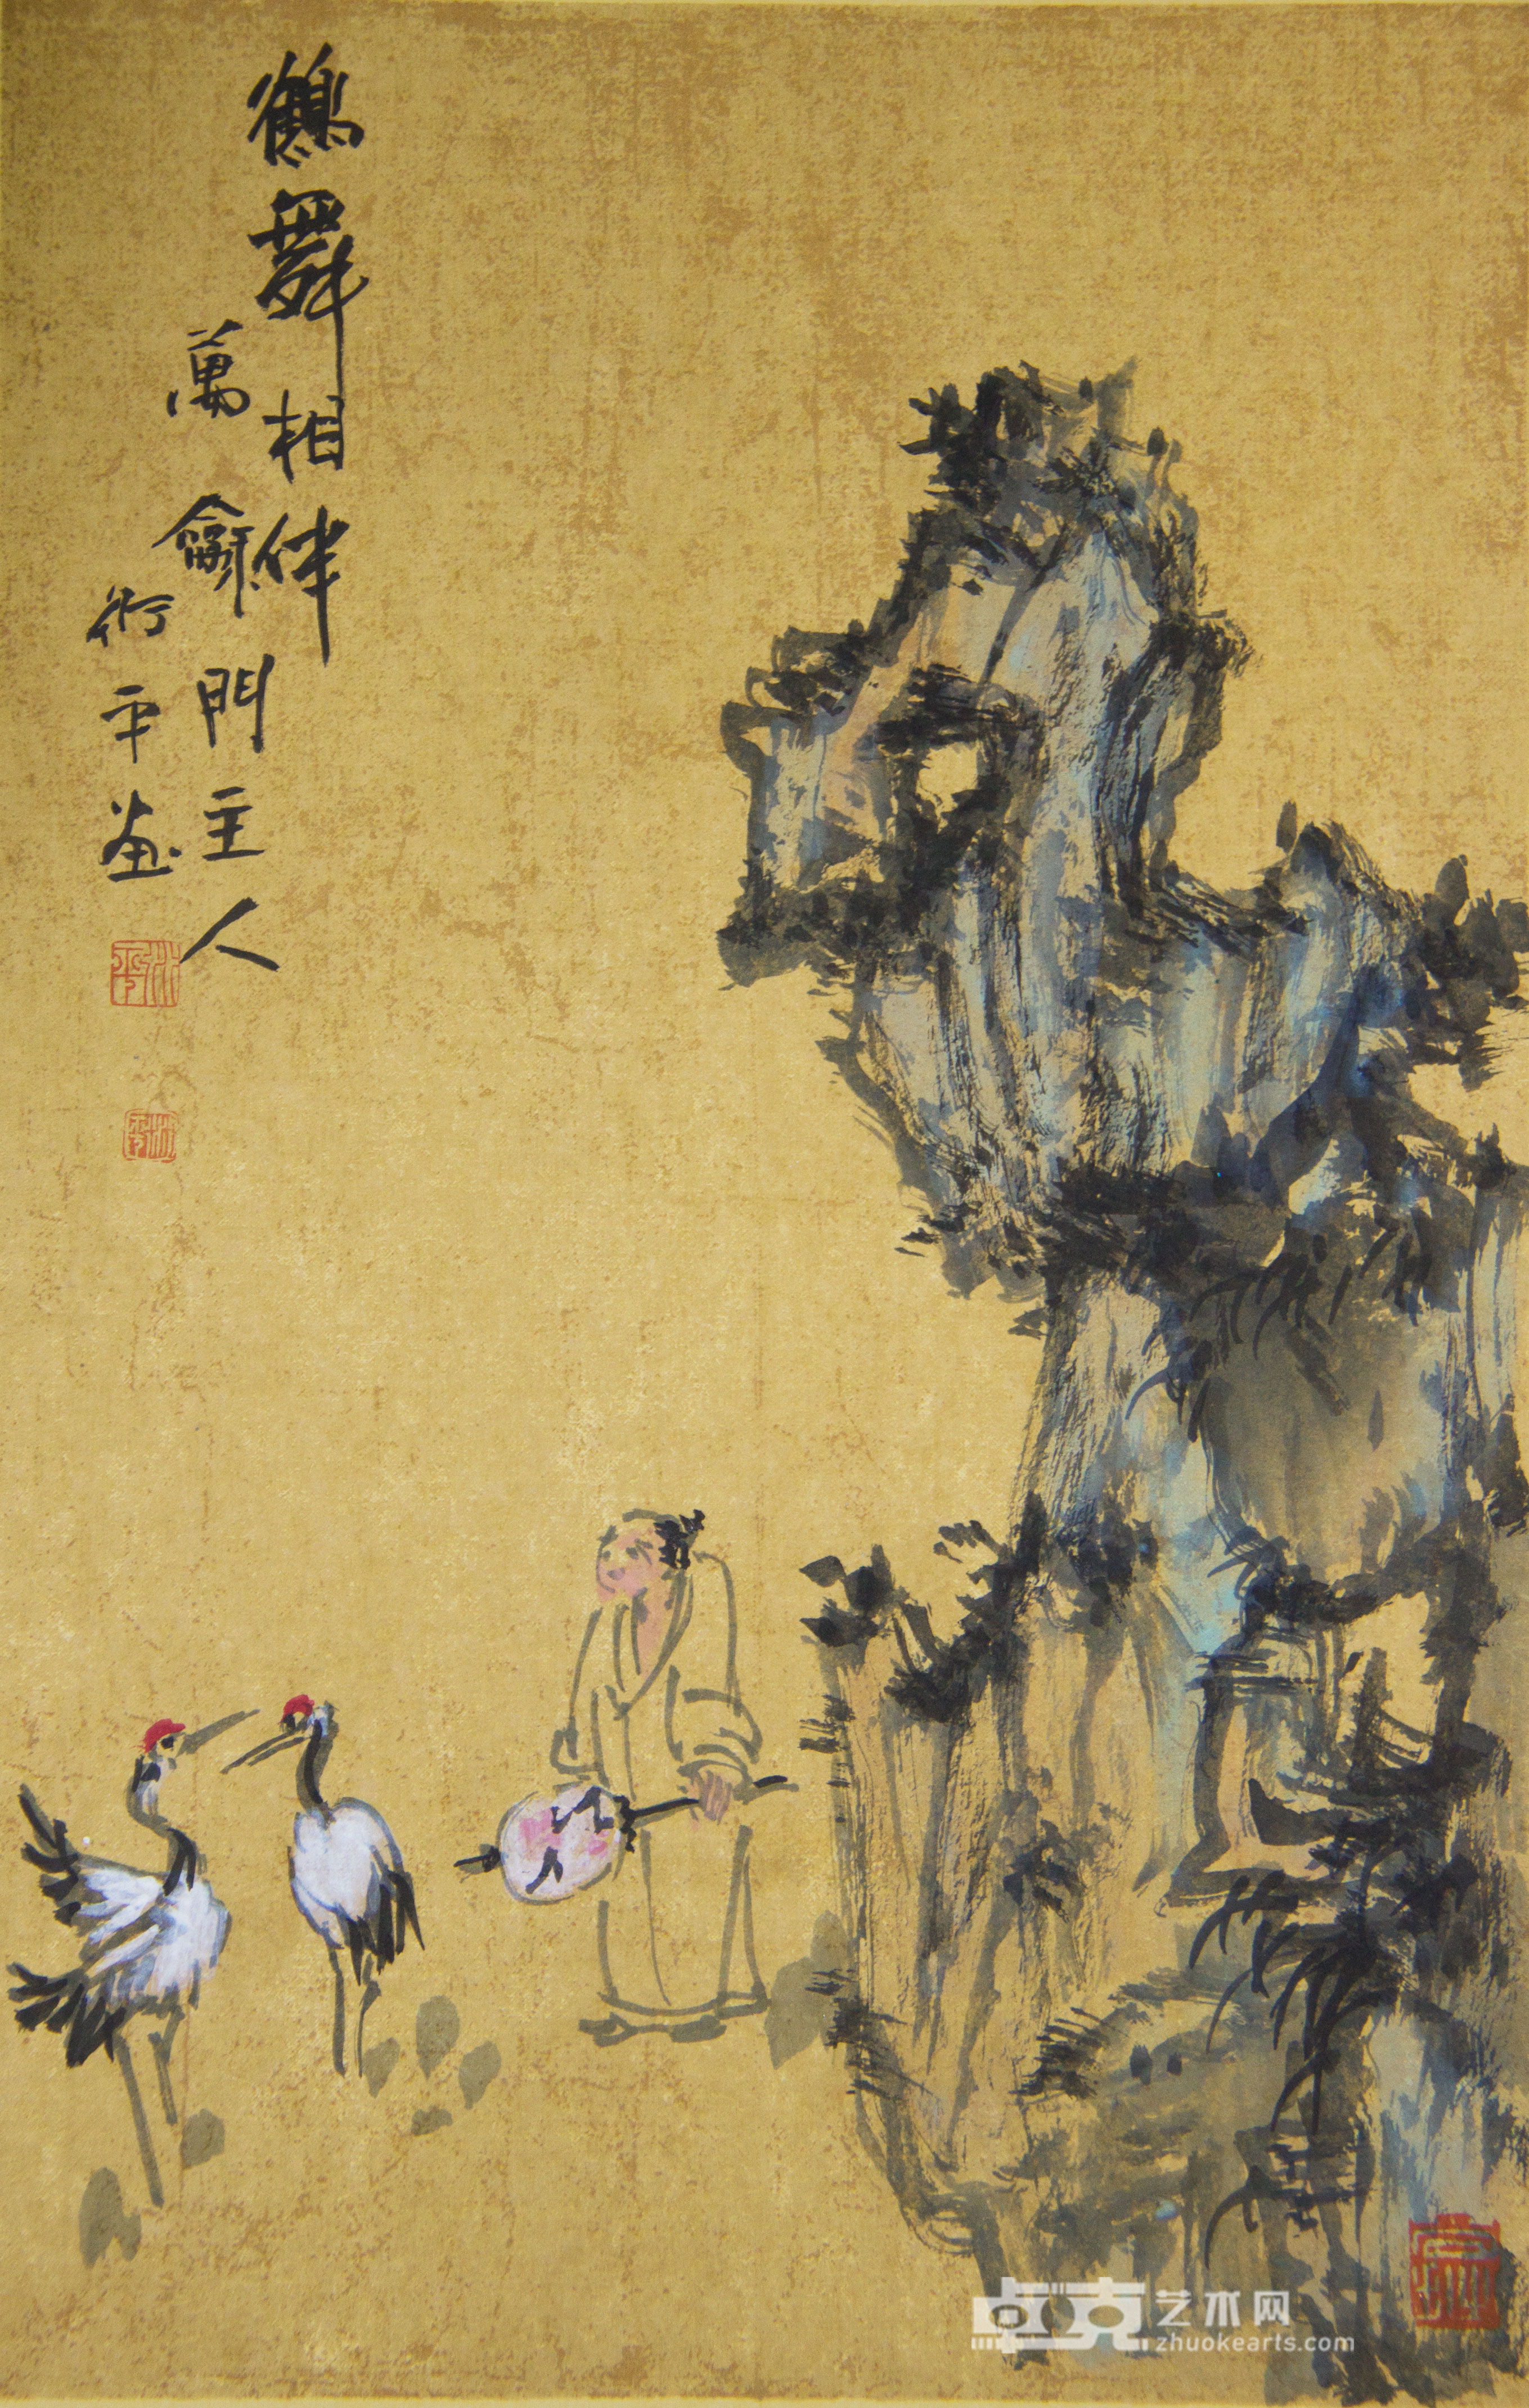 鶴舞相伴
萬龢門主人
衍平畫
卓克艺术网
zhuokearts.com